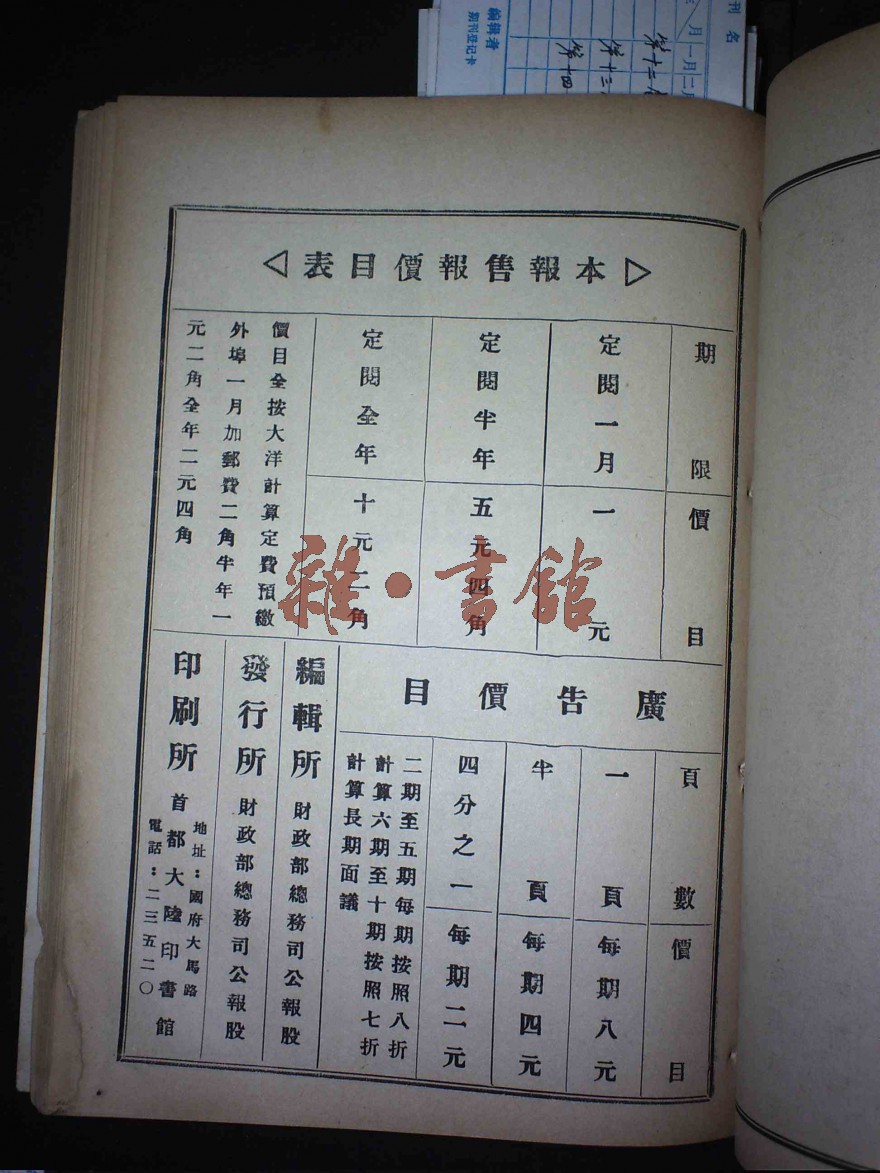 刊名
月
一月
二月
第十二
第十三
第十四
編輯者
期刊登记卡
本報售報價目表
期限
價目
定閱一月
一元
定閱半年
五元四角
定閱全年
十元二角
價目全按大洋計算定費預繳
外埠一月加郵費二角半年一
元二角全年二元四角
雜·書館
廣告價目
頁數
價目
一頁
每期八元
半頁
每期四元
四分之一
每期二元
二期至五期每期按照八折
計算六期至十期按照七折
計算長期面議
編輯所 財政部總務司公報股
發行所 財政部總務司公報股
印刷所 首都大陸印書館
地址：國府大馬路
電話：二三五二〇